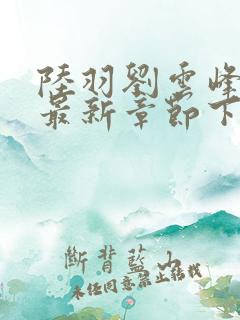 陸羽劉雲峰
最新章節下
斷背藍山
未經同意禁止轉載